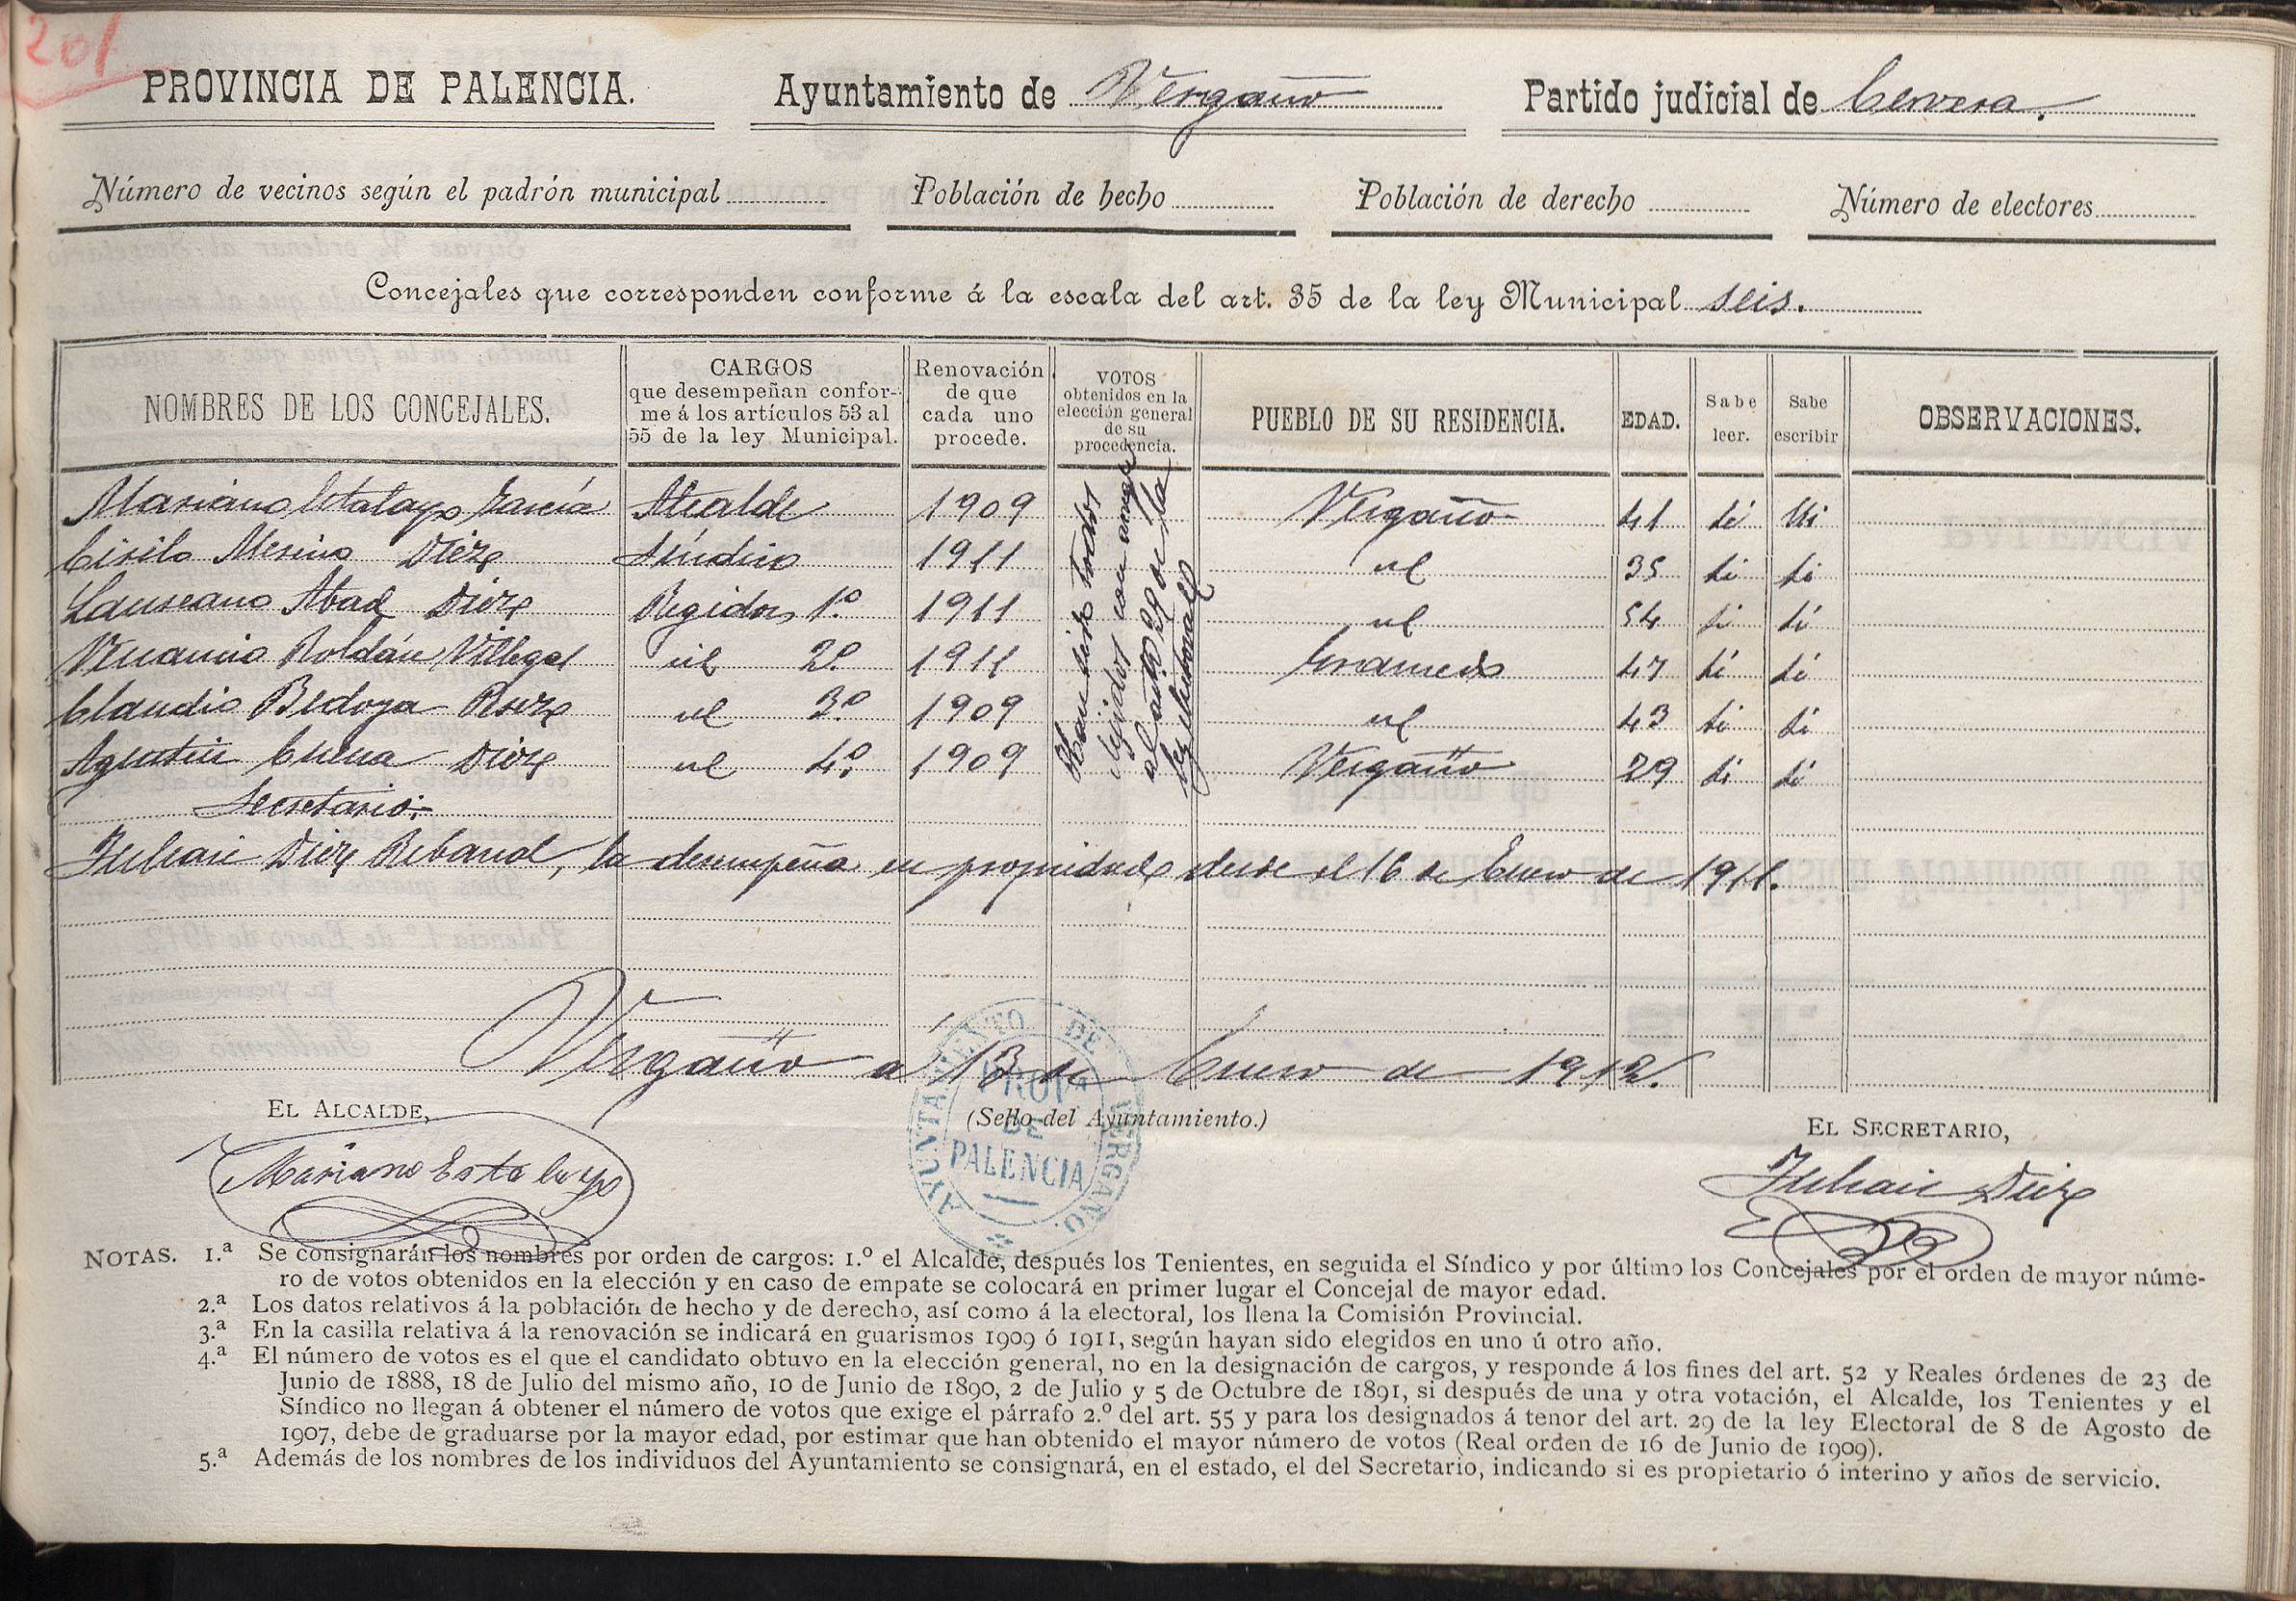 201
PROVINCIA DE PALENCIA. Ayuntamiento de Vergaño Partido judicial de Cervera.
Número de vecinos según el padrón municipal Población de hecho Población de derecho Número de electores
Concejales que corresponden conforme á la escala del art. 35 de la ley Municipal seis.
NOMBRES DE LOS CONCEJALES.
CARGOS
que desempeñan confor-
me á los artículos 53 al
55 de la ley Municipal.
Renovación
de que
cada uno
procede.
VOTOS
obtenidos en la
elección general
de su
procedencia.
PUEBLO DE SU RESIDENCIA.
EDAD.
Sabe
leer.
Sabe
escribir
OBSERVACIONES.
Mariano Estalayo García Alcalde 1909 Vergaño 41 si si
Cirilo Merino Diez Síndico 1911 id 35 si si
Laureano Abad Diez Regidor 1º 1911 id 54 si si
Venancio Roldán Villegas id 2º 1911 Gramedo 47 si si
Claudio Bedoya Ruiz id 3º 1909 id 43 si si
Agustin Cuena Diez id 4º 1909 Vergaño 29 si si
Han sido todos
elejidos con arreglo
al artº 29 de la
ley electoral
Secretario:
Julian Diez Rebanal, la desempeña en propiedad desde el 16 de Enero de 1911.
Vergaño a 13 de Enero de 1912.
EL ALCALDE,
(Sello del Ayuntamiento.)
EL SECRETARIO,
Mariano Estalayo
AYUNTAMIENTO DE VERGAÑO.
PROVª
DE
PALENCIA
Julian Diez
NOTAS. 1.ª Se consignarán los nombres por orden de cargos: 1.º el Alcalde, después los Tenientes, en seguida el Síndico y por último los Concejales por el orden de mayor núme-
ro de votos obtenidos en la elección y en caso de empate se colocará en primer lugar el Concejal de mayor edad.
2.ª Los datos relativos á la población de hecho y de derecho, así como á la electoral, los llena la Comisión Provincial.
3.ª En la casilla relativa á la renovación se indicará en guarismos 1909 ó 1911, según hayan sido elegidos en uno ú otro año.
4.ª El número de votos es el que el candidato obtuvo en la elección general, no en la designación de cargos, y responde á los fines del art. 52 y Reales órdenes de 23 de
Junio de 1888, 18 de Julio del mismo año, 10 de Junio de 1890, 2 de Julio y 5 de Octubre de 1891, si después de una y otra votación, el Alcalde, los Tenientes y el
Síndico no llegan á obtener el número de votos que exige el párrafo 2.º del art. 55 y para los designados á tenor del art. 29 de la ley Electoral de 8 de Agosto de
1907, debe de graduarse por la mayor edad, por estimar que han obtenido el mayor número de votos (Real orden de 16 de Junio de 1909).
5.ª Además de los nombres de los individuos del Ayuntamiento se consignará, en el estado, el del Secretario, indicando si es propietario ó interino y años de servicio.